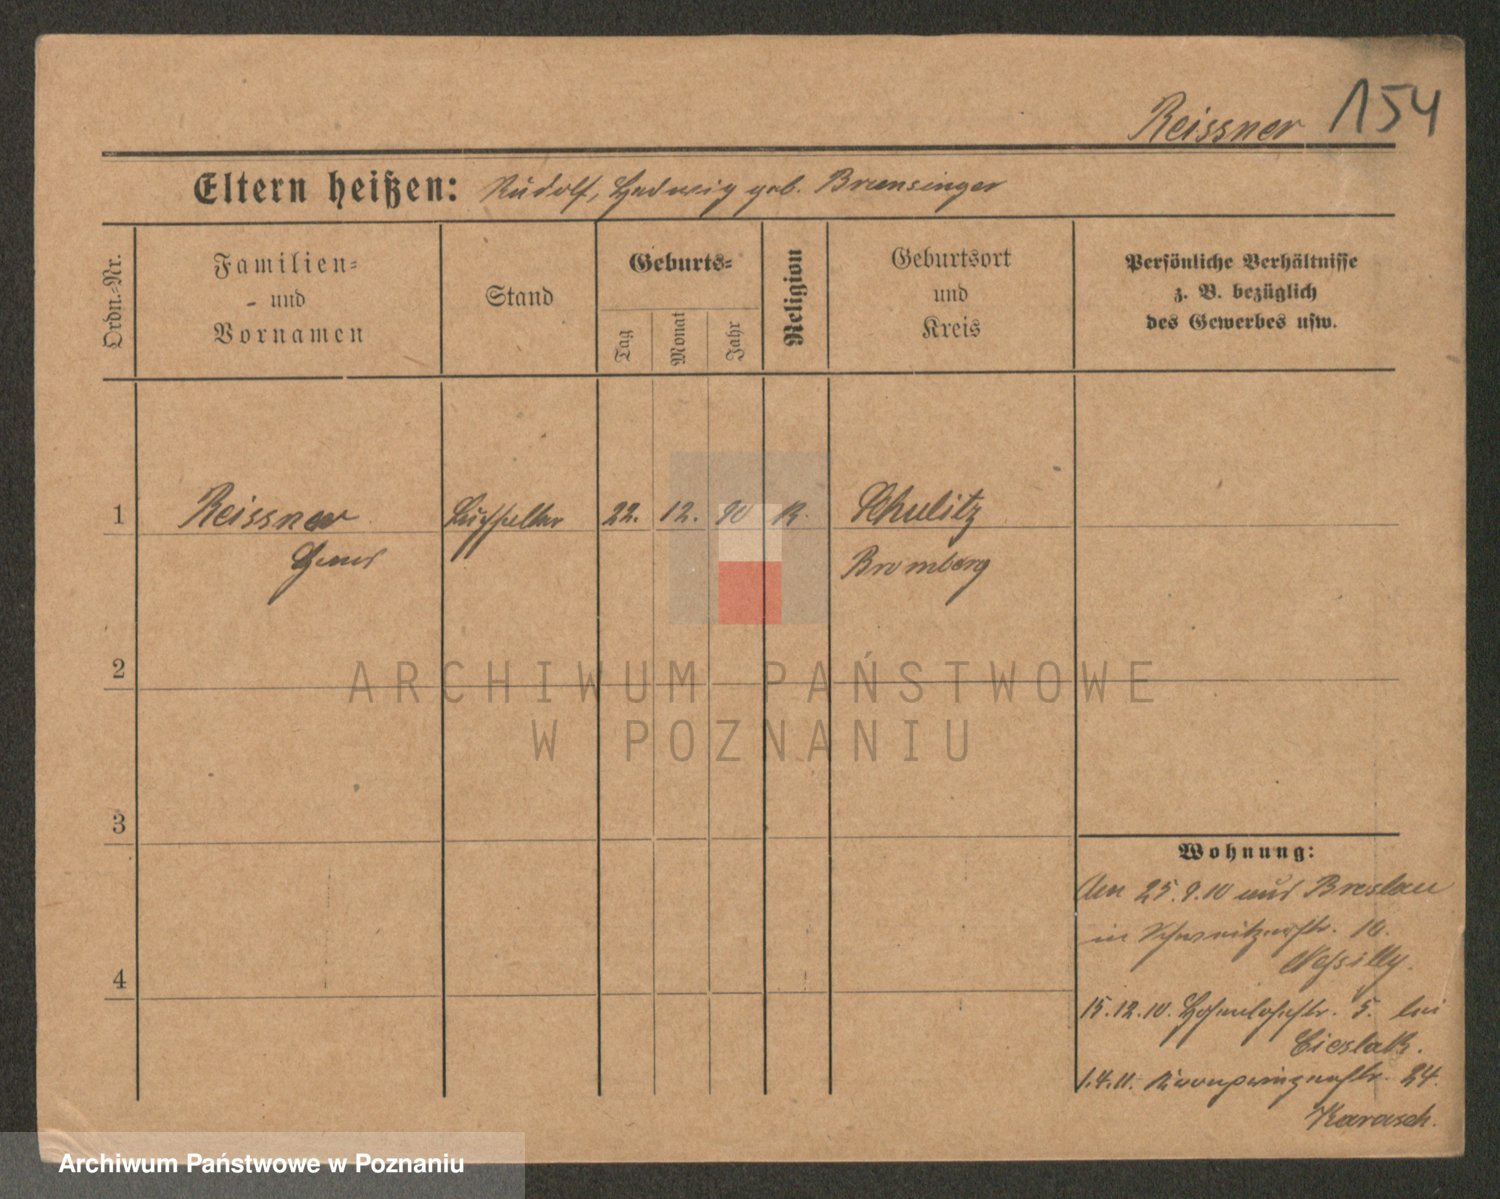 Reissner 154
Eltern heißen: Rudolf, Hedwig geb. Brunsinger
Ordn.=Nr.
Familien=
- und
Vornamen
Stand
Geburts=
Tag
Monat
Jahr
Religion
Geburtsort
und
Kreis
Persönliche Verhältnisse
z. B. bezüglich
des Gewerbes usw.
1 Reissner 22. 12. 90 K. Schulitz
Bromberg
2
ARCHIWUM PAŃSTWOWE
W POZNANIU
3
4
Wohnung:
Am 25.9.10 aus Breslau
in 16.
15.12.10. Hohenlohestr. 5. bei
Cieslak.
1.4.11. Kronprinzenstr. 24.
Karasch.
Archiwum Państwowe w Poznaniu